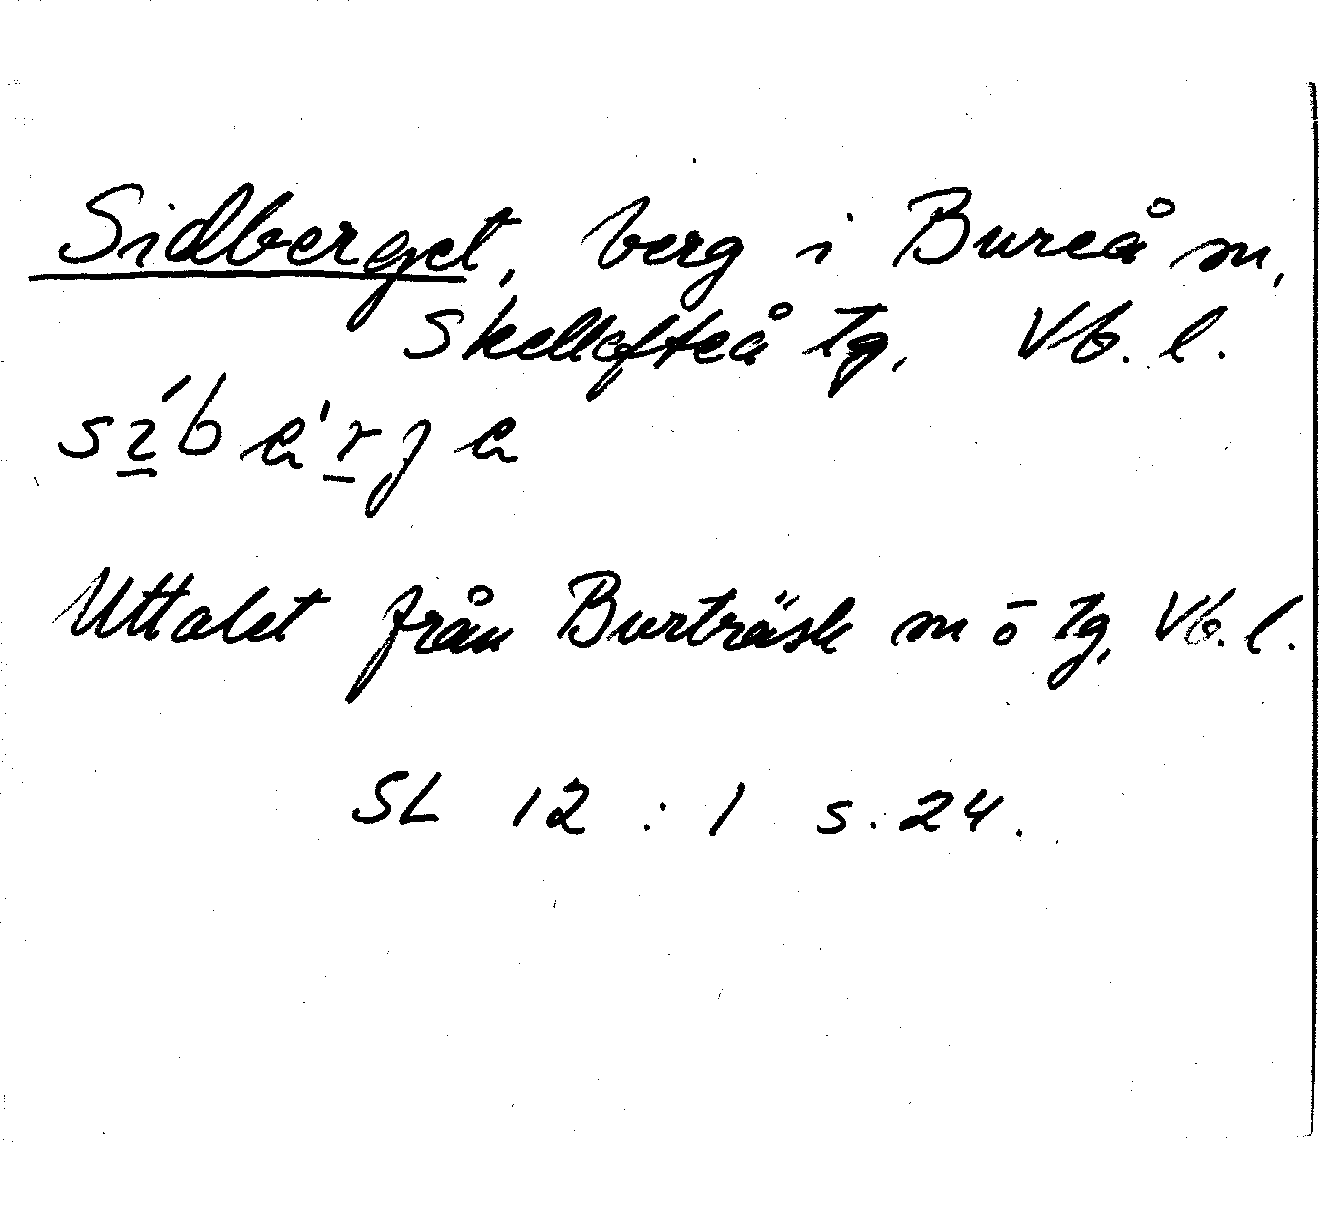 Sidberget, berg i Bureå m,
Skellefteå tg, Vb. l.
Uttalet från Burträsk m o tg, Vb. l.
SL 12 : 1 s. 24.